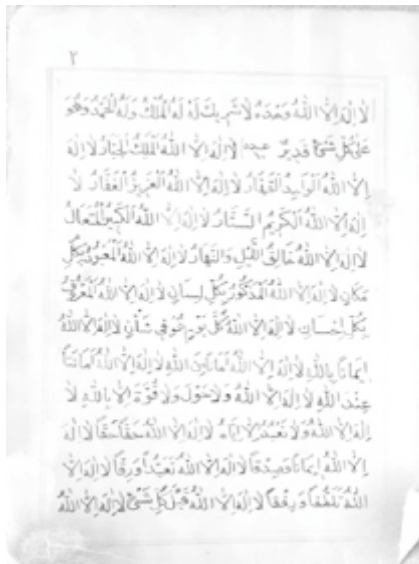 ٢
لا اله الا الله وحده لا شريك له له الملك وله الحمد وهو
على كل شئ قدير لا اله الا الله الملك الجبار لا اله
الا الله الواحد القهار لا اله الا الله العزيز الغفار لا
اله الا الله الكريم الستار لا اله الا الله الكبير المتعال
لا اله الا الله خالق الليل والنهار لا اله الا الله المعبود بكل
مكان لا اله الا الله المذكور بكل لسان لا اله الا الله المعروف
بكل احسان لا اله الا الله كل يوم هو في شأن لا اله الا الله
ايمانا بالله لا اله الا الله امانا من الله لا اله الا الله امانتا
عند الله لا اله الا الله ولا حول ولا قوة الا بالله لا
اله الا الله ولا نعبد الا اياه لا اله الا الله حقا حقا لا اله
الا الله ايمانا وصدقا لا اله الا الله تعبدا ورقا لا اله الا
الله تلطفا ورفقا لا اله الا الله قبل كل شئ لا اله الا الله